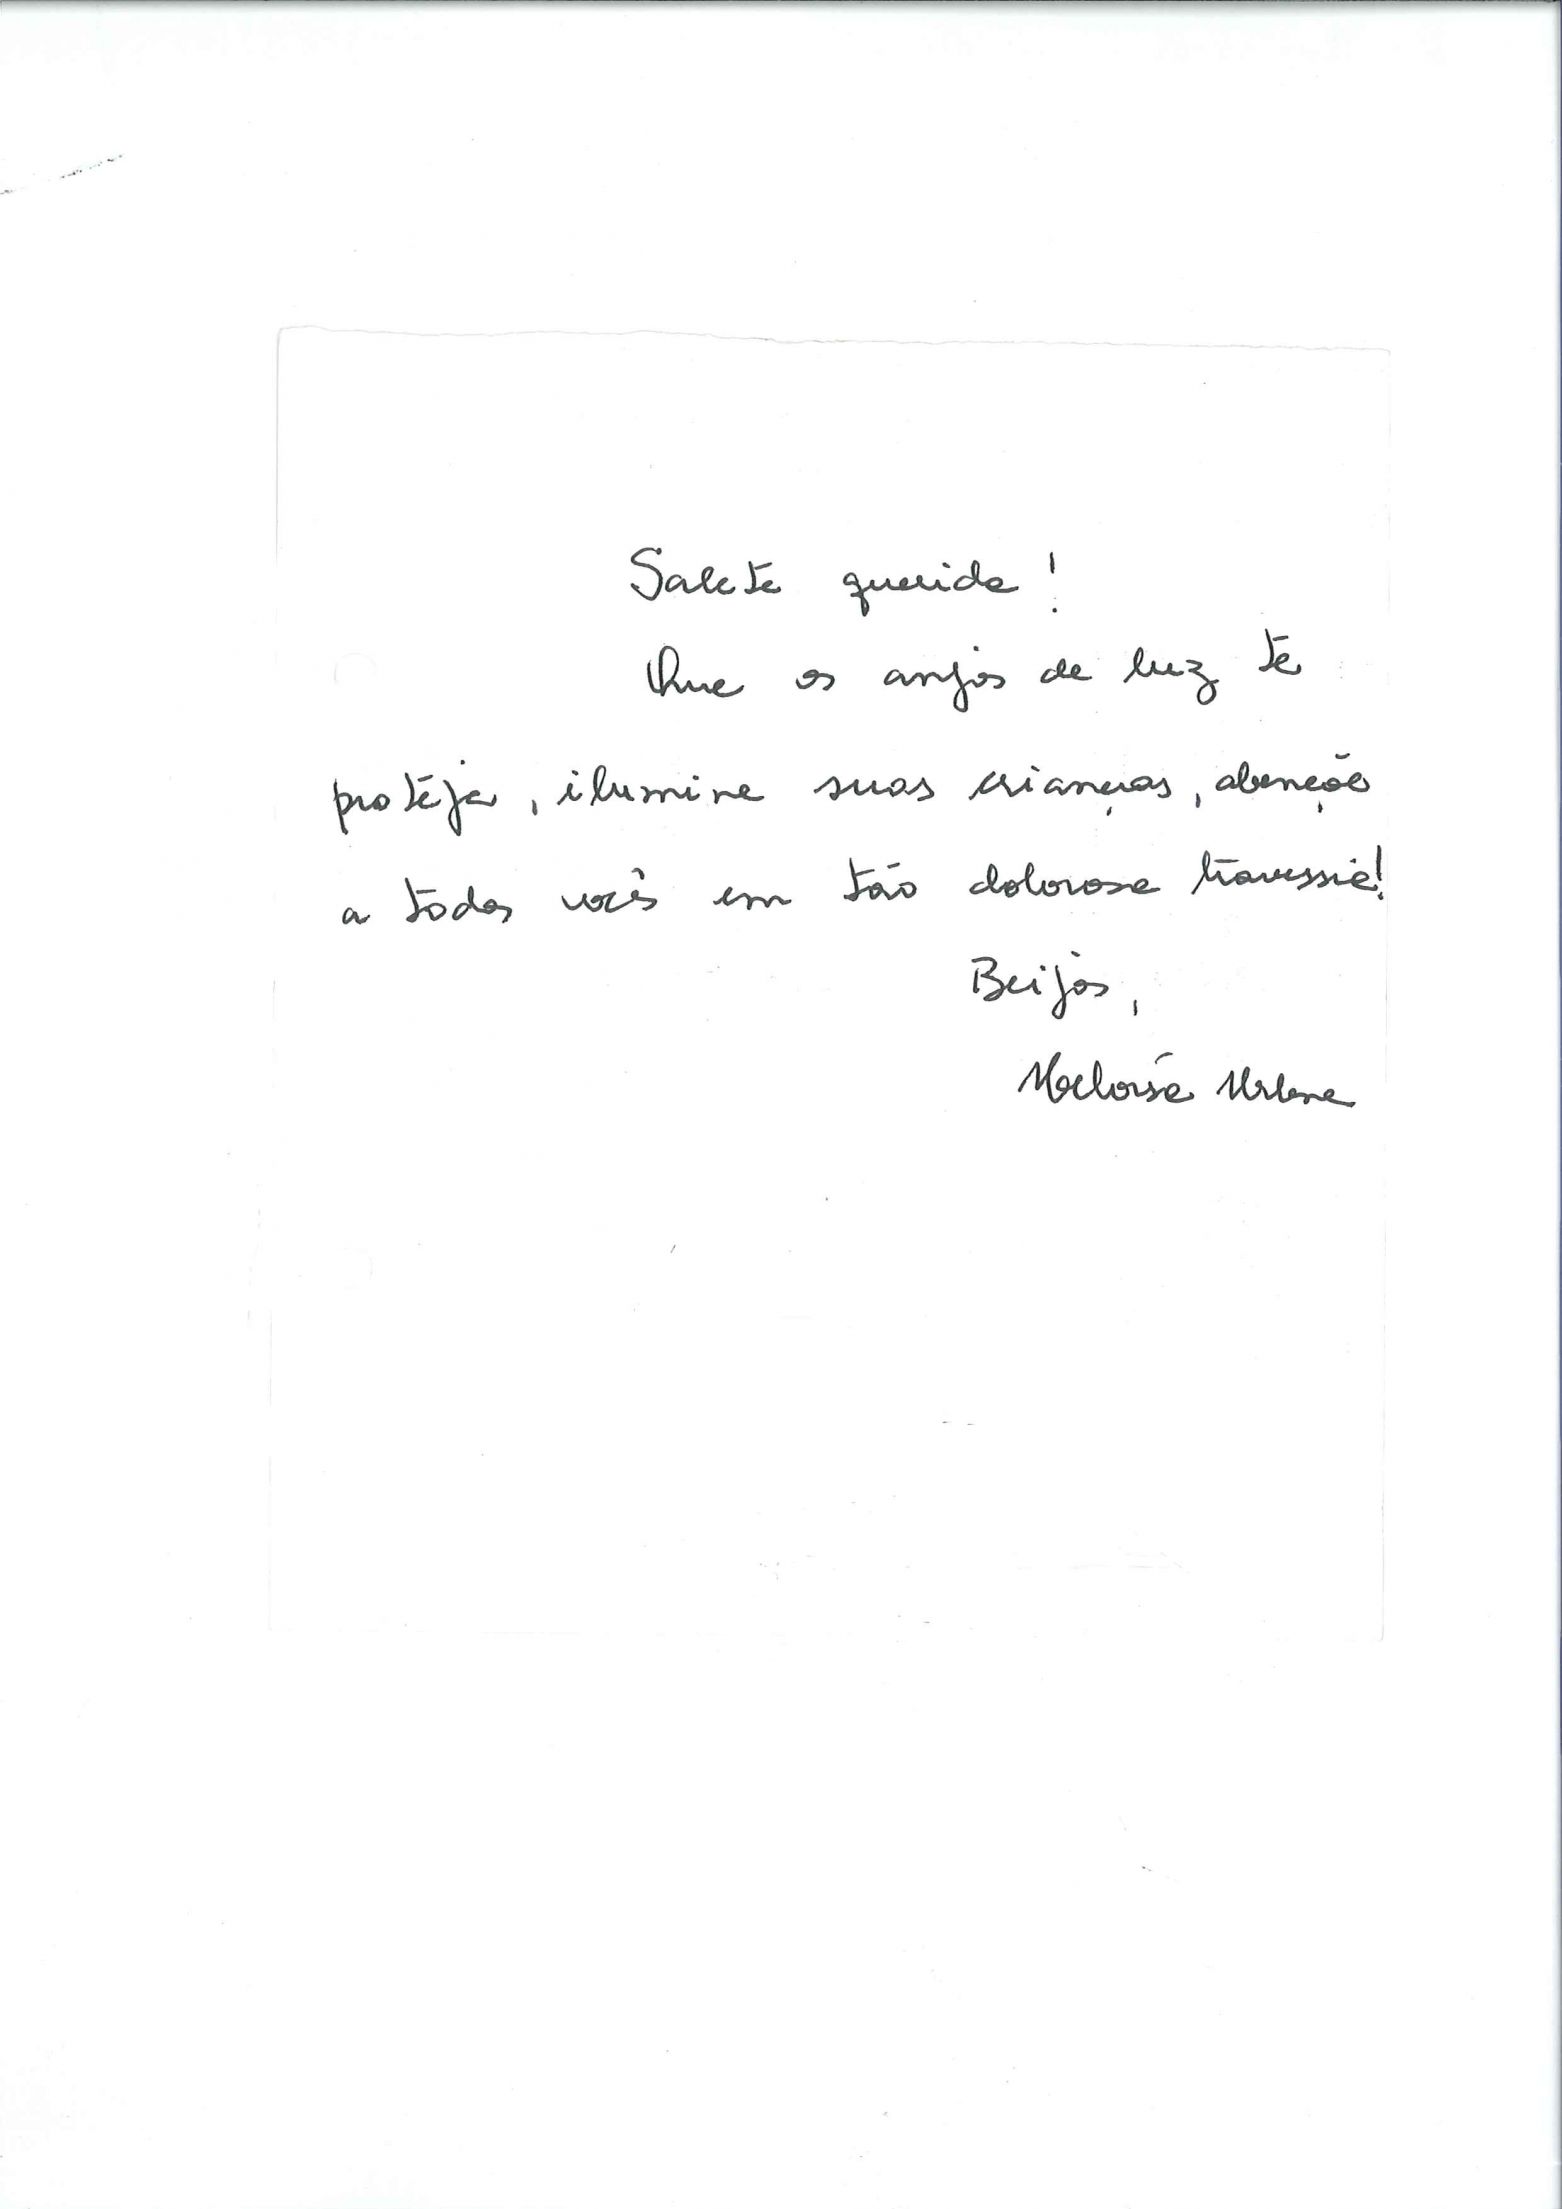 Salete querida!
Que os anjos de luz te
proteja, ilumine suas crianças, abençõe
a todos vocês em tão dolorosa travessia!
Beijos,
Heloísa